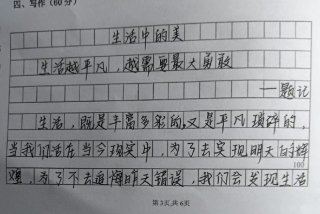 四、写作(60分)
生活中的美
生活越平凡,越需要最大勇敢
——题记
生活,既是丰富多彩的,又是平凡琐碎的,
当我们活在当今现实中,为了去实现明天的辉
100
煌,为了不去追悔昨天错误,我们会发现生活
第3页,共6页